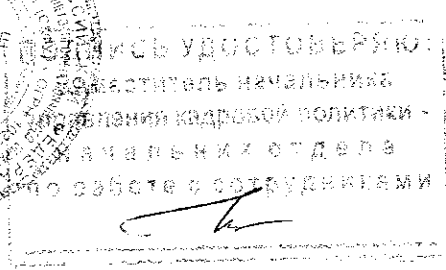 ПОДПИСЬ УДОСТОВЕРЯЮ:
заместитель начальника
управления кадровой политики -
начальник отдела
по работе с сотрудниками